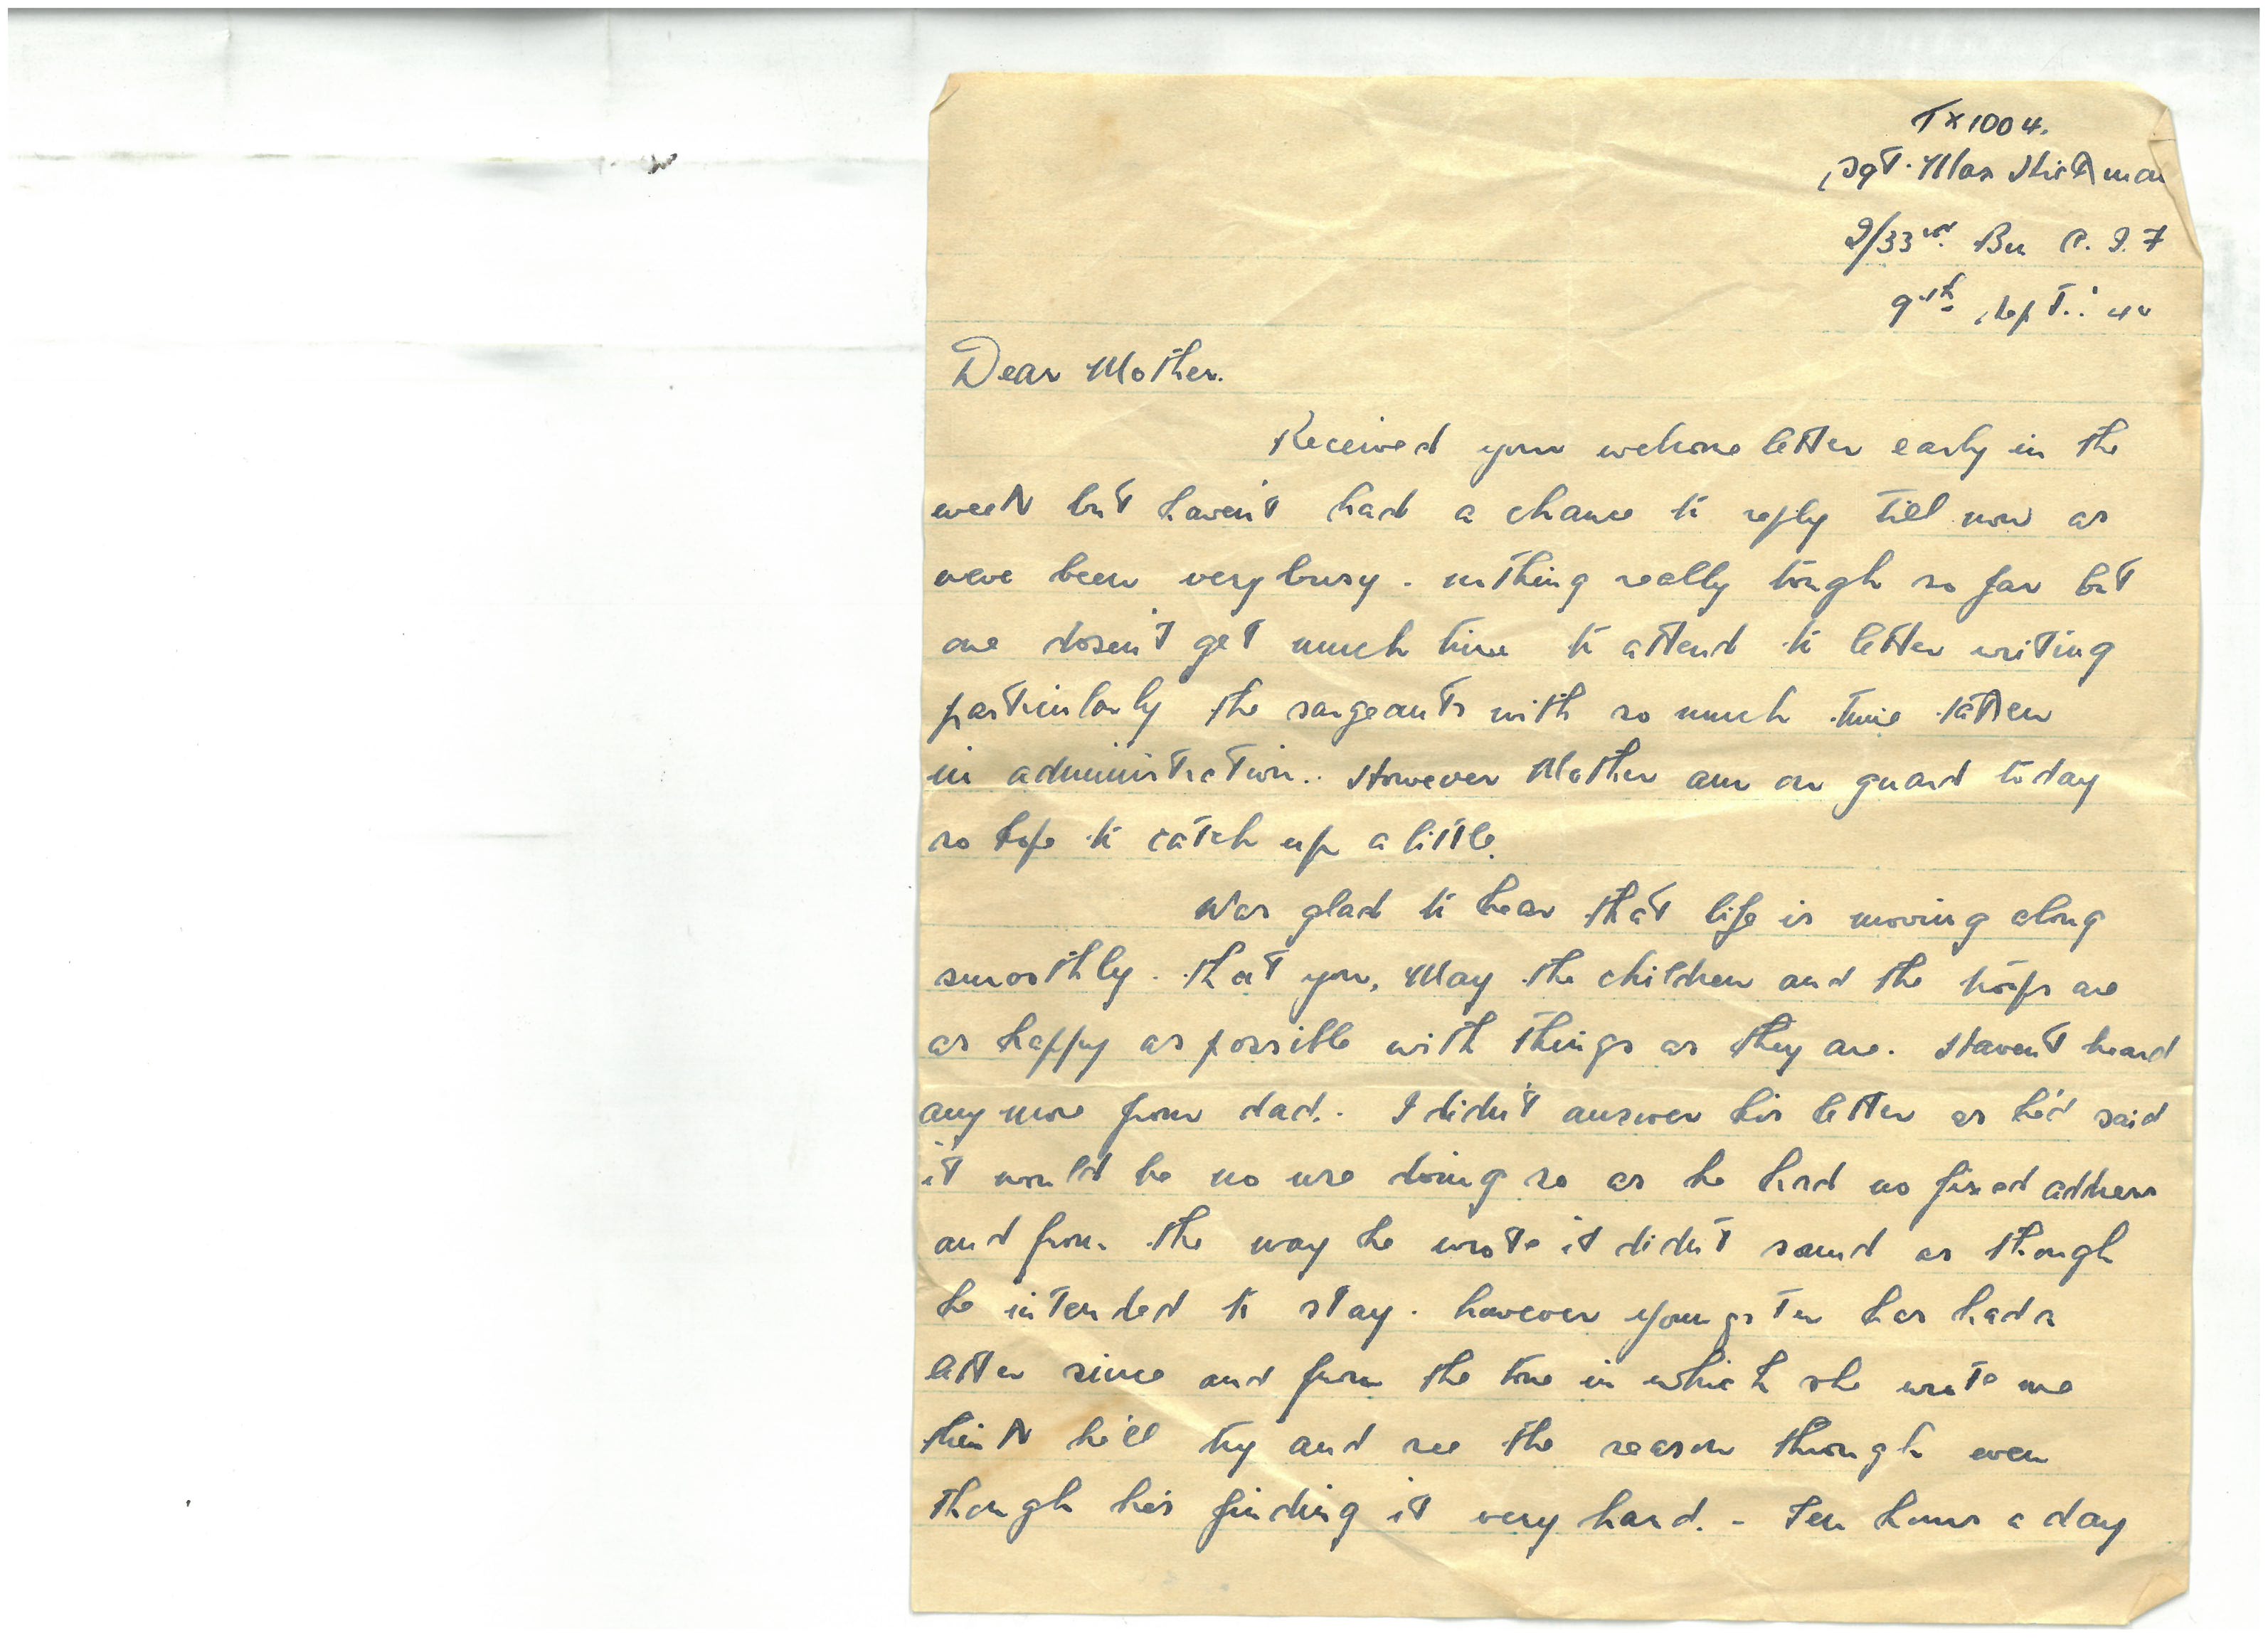 TX1004.
Sgt. Max Hickman
2/33rd Bn A. I. F
9th Sept.
Dear Mother.
Received your welcome letter early in the
week but haven't had a chance to reply till now as
weve been very busy. nothing really tough so far but
one dosen't get much time to attend to letter writing
particularly the sargeants with so much time taken
in administration.. However Mother am on guard today
so hope to catch up a little.
Was glad to hear that life is moving along
smoothly. that you, May the children and the are
as happy as possible with things as they are. Haven't heard
any more from dad.. I didn't answer his letter as he'd said
it would be no use doing so as he had no fixed address
and from the way he wrote it didn't sound as though
he intended to stay. however Youngster has had a
letter since and from the tone in which she wrote me
think he'll try and see the season through even
though he's finding it very hard. - Ten hours a day